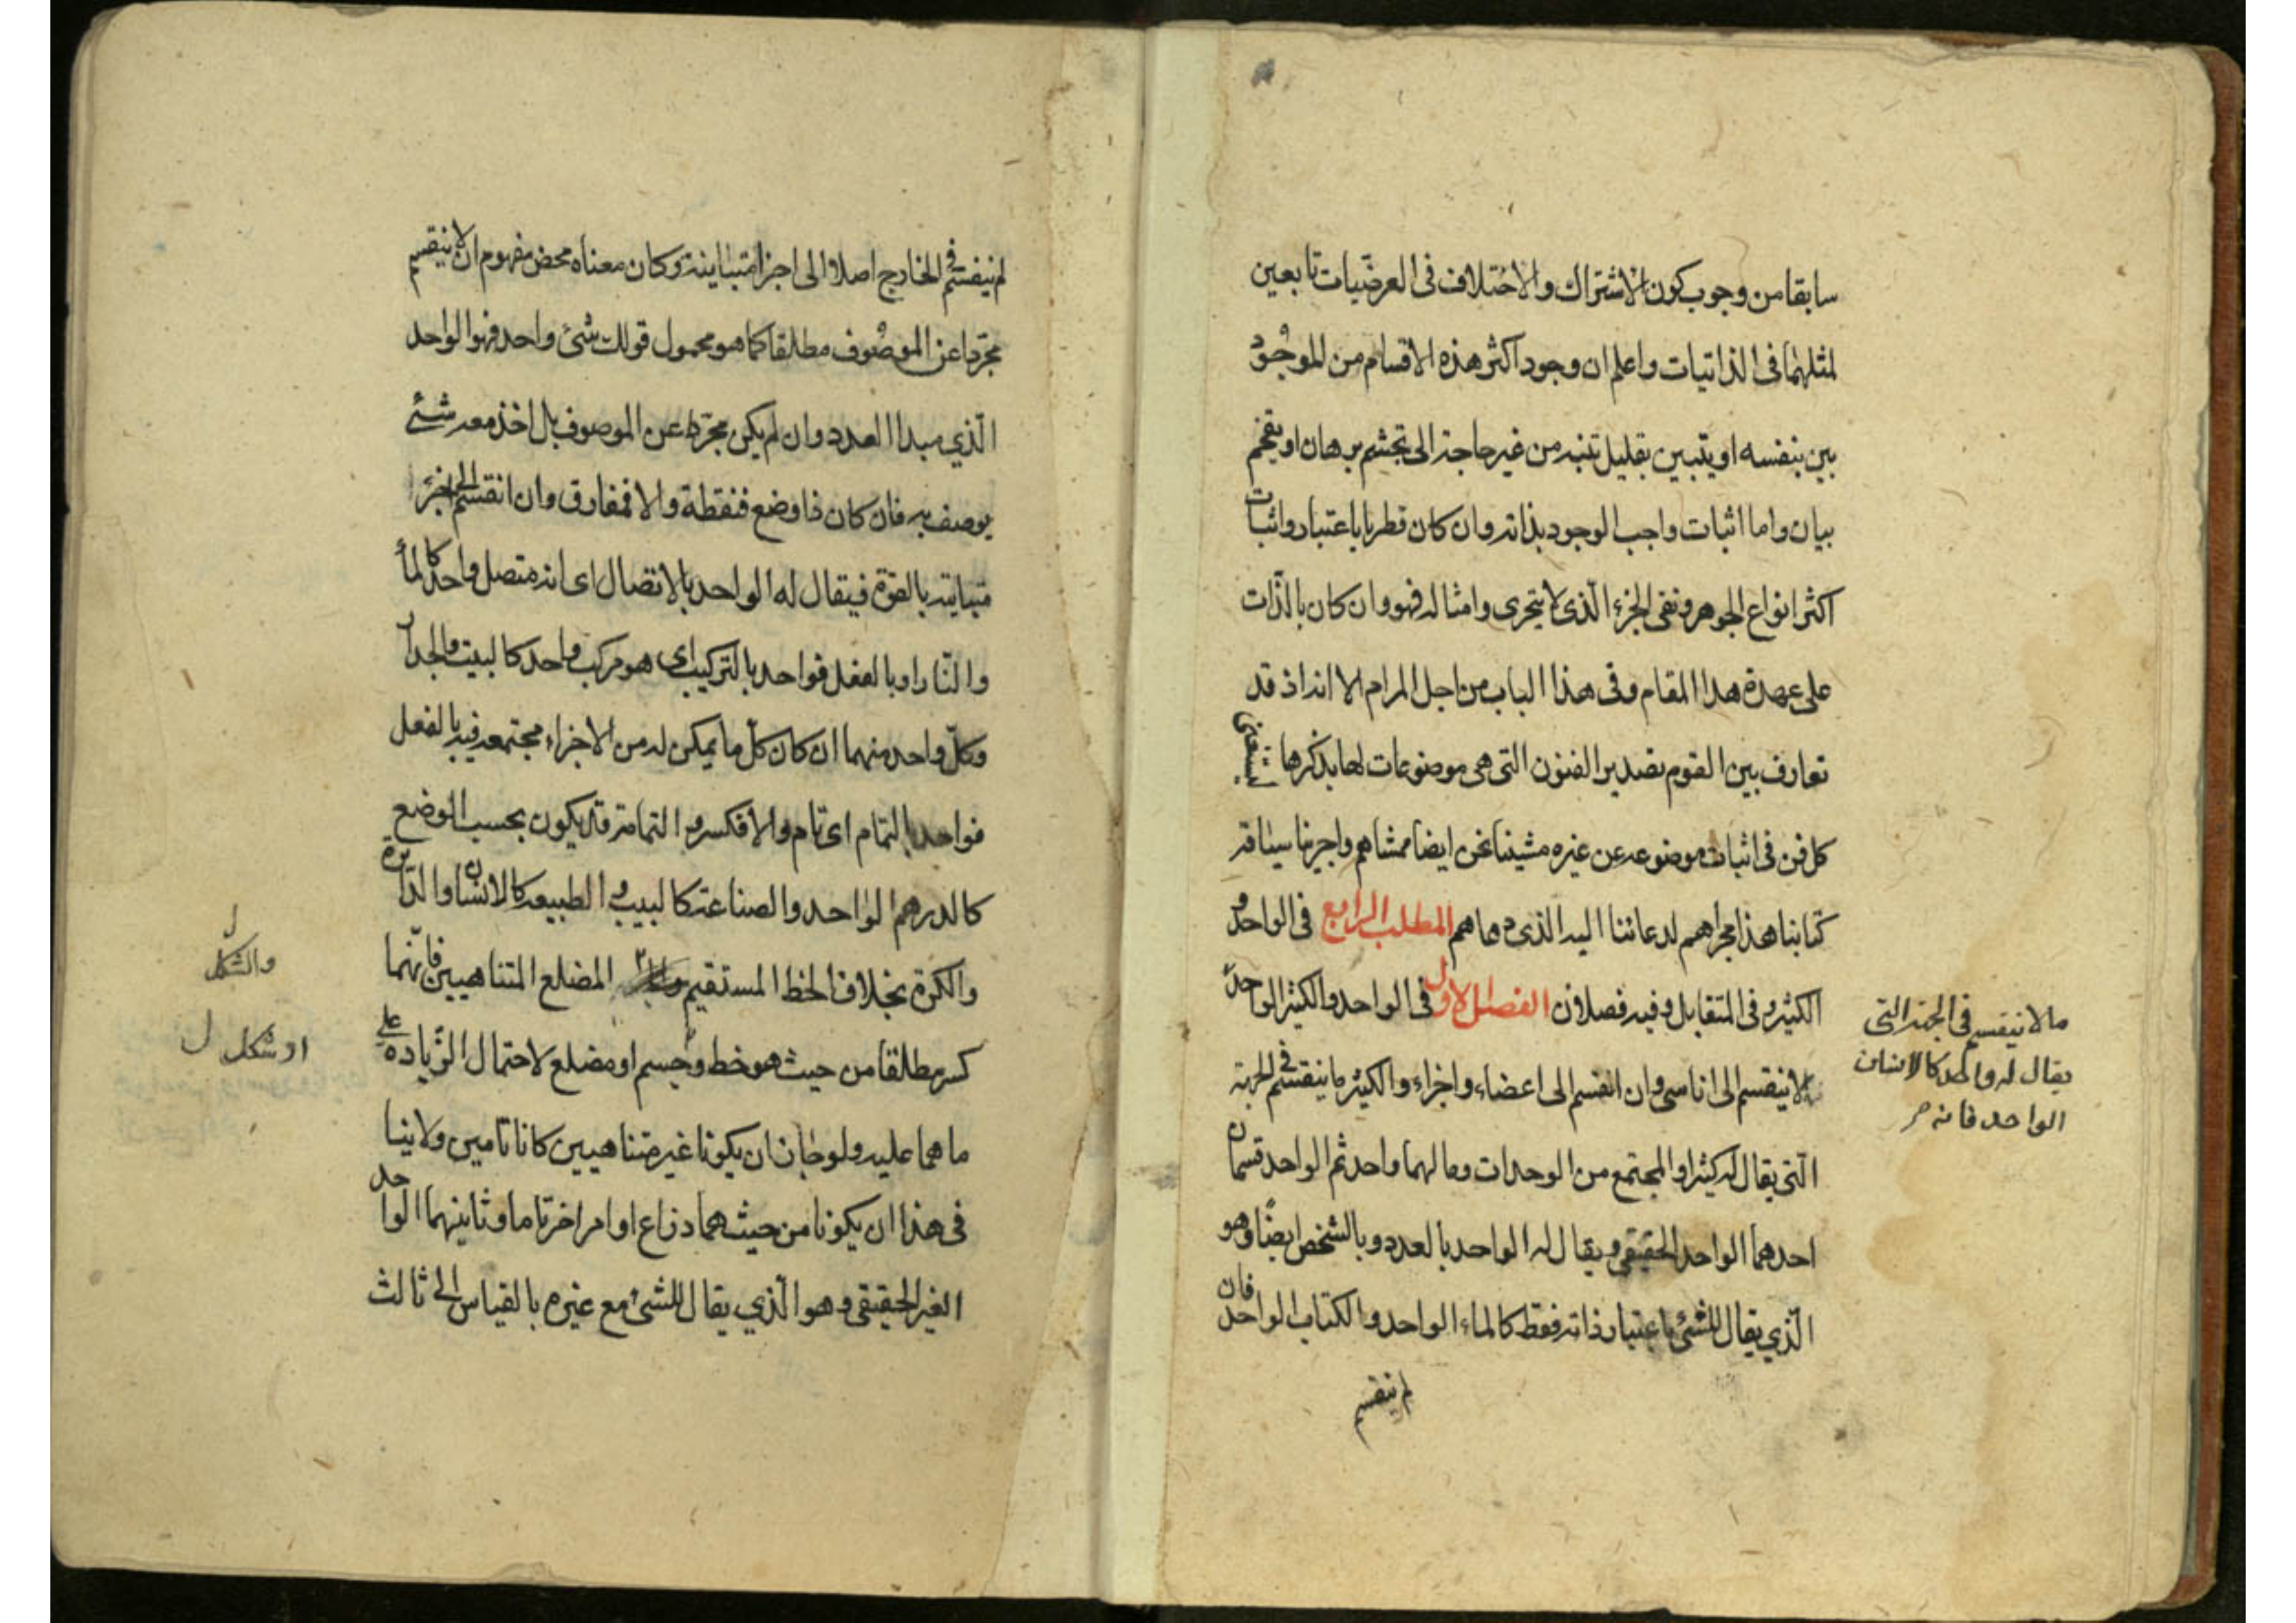 سابقا من وجوب كون الاشتراك والاختلاف فى العرضيات تابعين
لمثلهما فى الذاتيات واعلم ان وجود اكثر هذه الاقسام من الموجود
بين بنفسه او يتبين بقليل تنبه من غير حاجة الى تجشم برهان او
بيان واما اثبات واجب الوجود بذاته وان كان فطريا باعتبار واثبات
اكثر انواع الجوهر ونفى الجزء الّذى لا يتجزى وامثاله فهو وان كان بالذّات
على عهدة هذا المقام وفى هذا الباب من اجل المرام الا انه اذ قد
تعارف بين القوم تصدير الفنون التى هى موضوعات لها بذكرها ليستغنى
كل فن فى اثبات موضوعه عن غيره مشينا نحن ايضا ممشاهم واجرينا سياقة
كتابنا هذا مجراهم لدعائنا اليه الذى دعاهم المطلب الرابع فى الواحد و
الكثير وفى المتقابل وفيه فصلان الفصل الاول فى الواحد والكثير الواحد
لا ينقسم الى اناسى وان انقسم الى اعضاء واجزاء والكثير ما ينقسم فى الجهة
الّتى يقال له كثير او المجتمع من الوحدات وما لهما واحد ثم الواحد قسمان
احدهما الواحد الحقيقى ويقال له الواحد بالعدد وبالشخص ايضًا وهو
الّذي يقال للشئ باعتبار ذاته فقط كالماء الواحد والكتاب الواحد فان
لم ينقسم
ما لا ينقسم فى الجهة التى
يقال له واحد كالانسان
الواحد فانه
لم ينقسم فى الخارج اصلا الى اجزا متباينة وكان معناه محض مفهوم ان لا ينقسم
مجرّدا عن الموصوف مطلقا كما هو محمول قولك شئ واحد فهو الواحد
الّذي مبدا العدد وان لم يكن مجرّدا عن الموصوف بل اخذ معه شئ
يوصف به فان كان ذا وضع فنقطة والا فمفارق وان انقسم الى اجزاء
متباينة بالقوّة فيقال له الواحد بالاتصال اى انه متصل واحد كالماء
والنّار او بالفعل فواحد بالتركيب اى هو مركب واحد كالبيت والجدار
وكلّ واحد منهما ان كان كلّ ما يمكن له من الاجزاء مجتمعة فيه بالفعل
فواحد بالتمام اى تام والا فكسر و التمامة قد يكون بحسب الوضع
كالدرهم الواحد والصناعة كالبيت و الطبيعة كالانسان والدّائرة
والكرة بخلاف الخط المستقيم المضلع المتناهيين فانّهما
كسر مطلقا من حيث هو خط وجسم او مضلع لاحتمال الزّيادة على
ما هما عليه ولو جاز ان يكونا غير متناهيين كانا تامين ولا ينا
فى هذا ان يكونا من حيث هما ذراع او امر اخر تاما وثانيهما الواحد
الغير الحقيقى وهو الّذي يقال للشئ مع غيره بالقياس الى ثالث
والشكل
او شكل